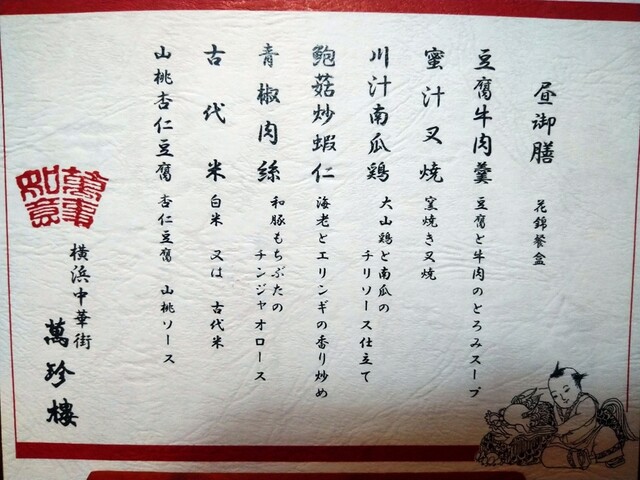 昼御膳 花錦餐盒
豆腐牛肉羹 豆腐と牛肉のとろみスープ
蜜汁叉焼 窯焼き叉焼
川汁南瓜鶏 大山鶏と南瓜の
チリソース仕立て
鮑菇炒蝦仁 海老とエリンギの香り炒め
青椒肉絲 和豚もちぶたの
チンジャオロース
古代米 白米 又は 古代米
山桃杏仁豆腐 杏仁豆腐 山桃ソース
萬事
如意
横浜中華街
萬珍樓